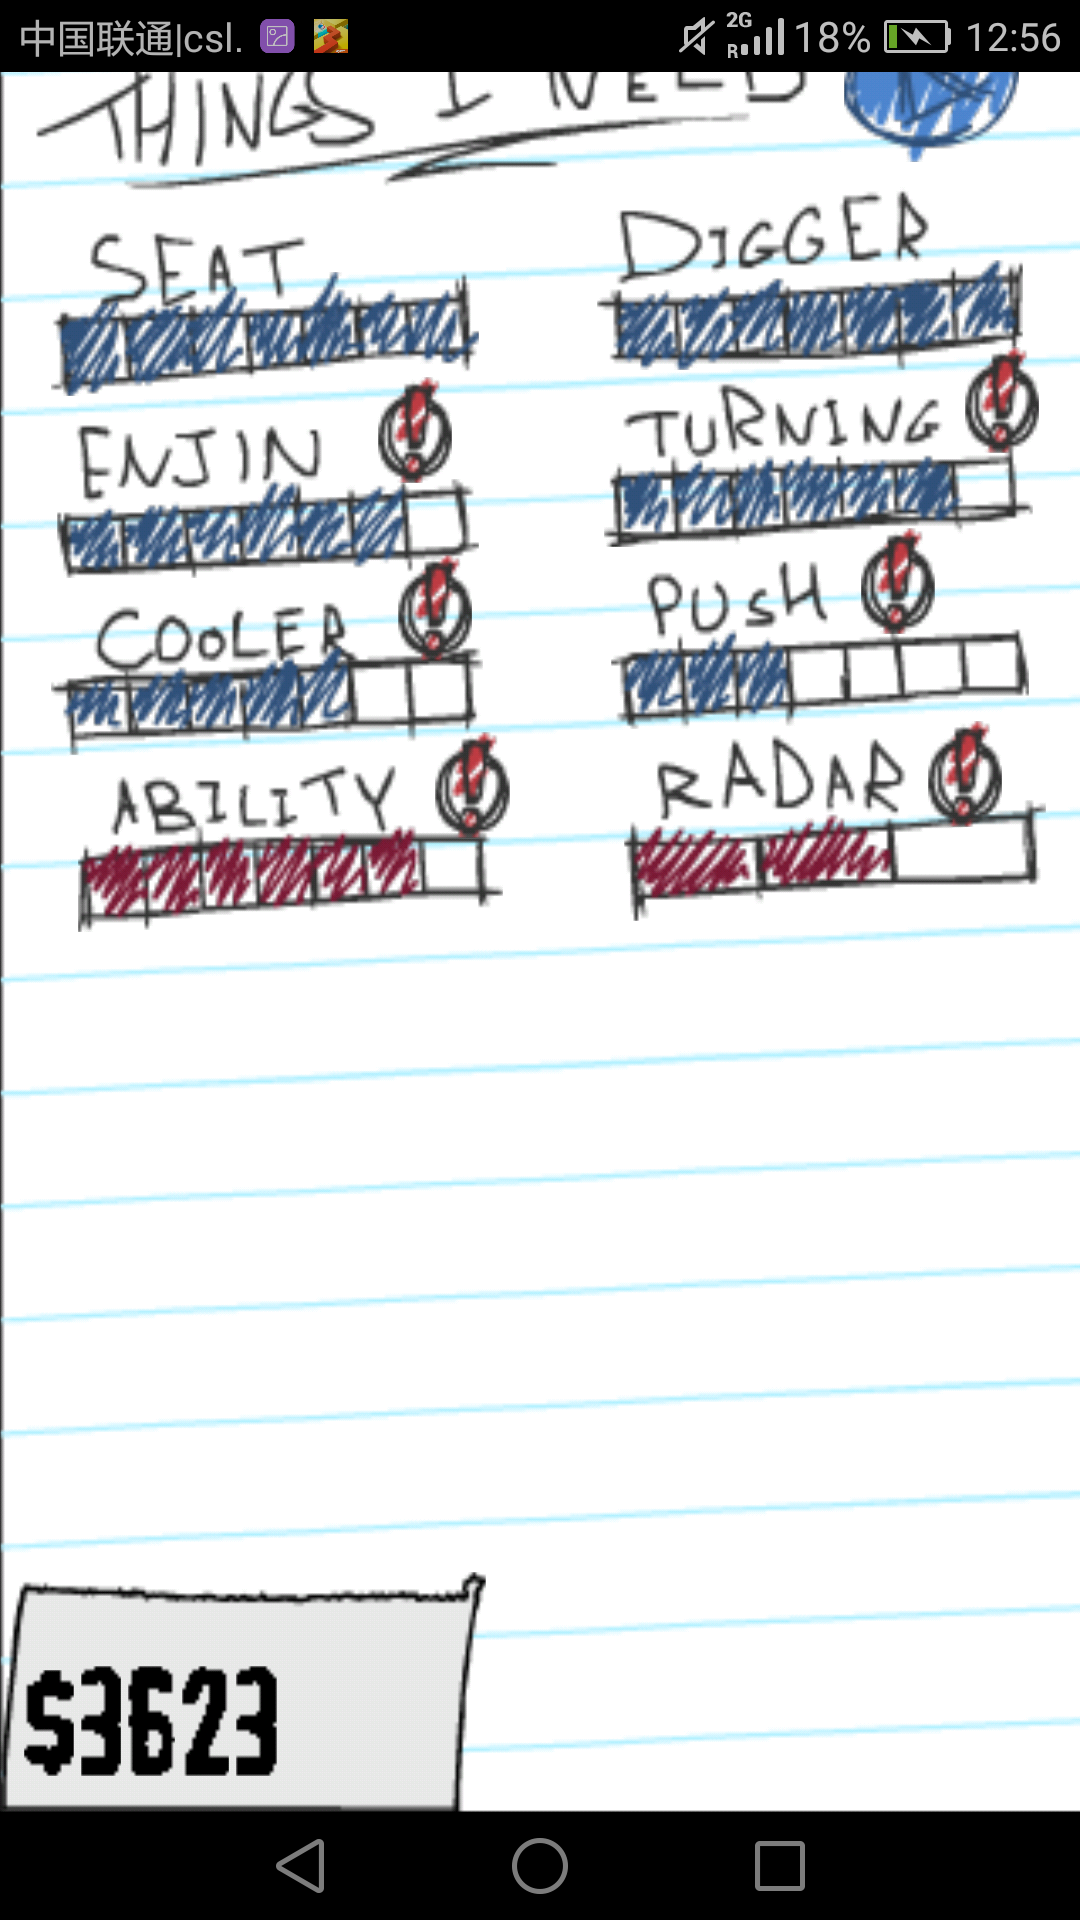 中国联通|csl. 2G R 18% 12:56
THINGS I NEED
SEAT DIGGER
ENJIN TURNING
COOLER PUSH
ABILITY RADAR
$3623